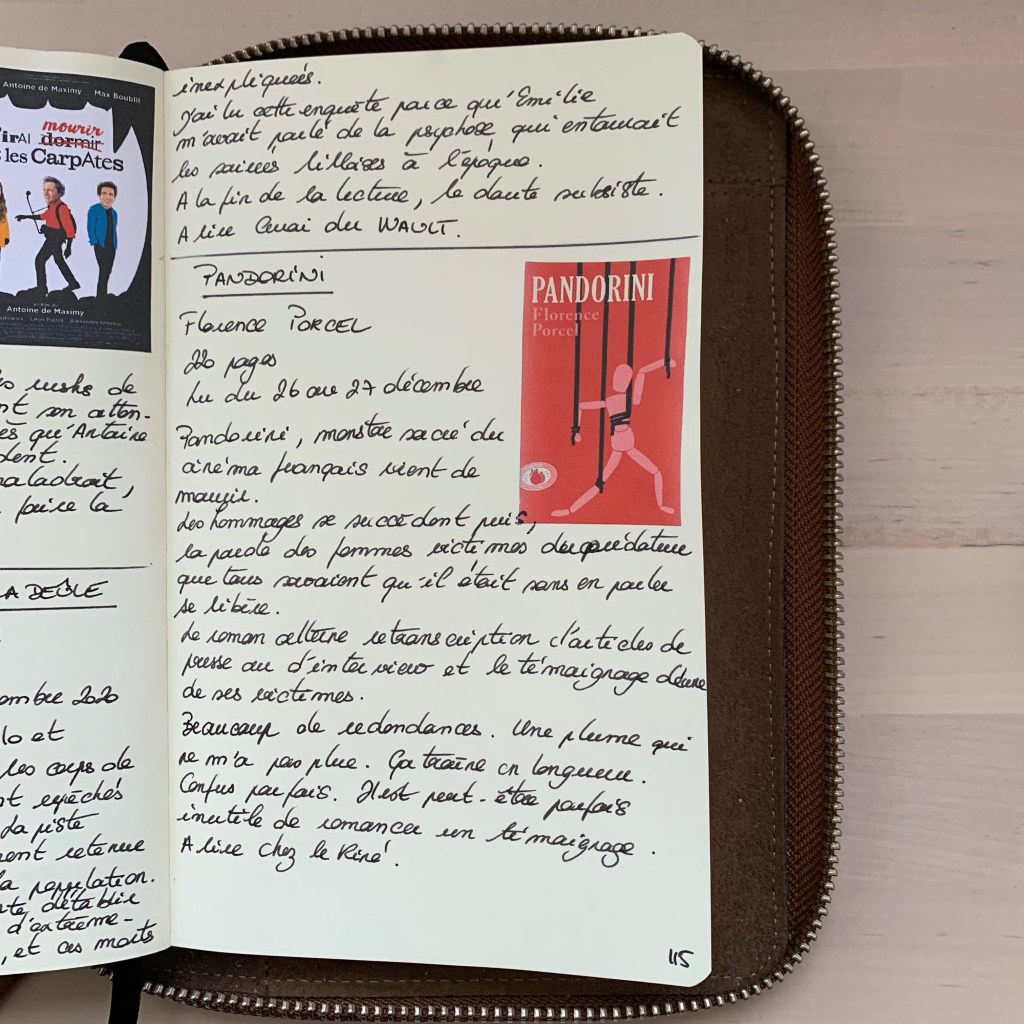 Antoine de Maximy Max Boublil
mourir
'irAI dormir
s les CarpAtes
Antoine de Maximy
es rushs de
nt son atten-
ès qu'Antoine
dent.
maladroit,
faire la
LA DEÛLE
embre 2020
lo et
les corps de
nt repêchés
La piste
ment retenue
la population.
nte d'établir
d'extrême-
, et ces morts
inexpliquées.
J'ai lu cette enquête parce qu'Emilie
m'avait parlé de la psychose qui entourait
les soirées lilloises à l'époque.
A la fin de la lecture, le doute subsiste.
A lire Quai du WAULT.
PANDORINI
Florence PORCEL
220 pages
Lu du 26 au 27 décembre
Pandorini, monstre sacré du
cinéma français vient de
mourir.
Les hommages se succèdent puis,
la parole des femmes victimes du prédateur
que tous savaient qu'il était sans en parler
se libère.
Le roman alterne retranscription d'articles de
presse ou d'interview et le témoignage d'une
de ses victimes.
Beaucoup de redondances. Une plume qui
ne m'a pas plue. Ça traîne en longueur.
Confus parfois. Il est peut-être parfois
inutile de romancer un témoignage.
A lire chez le Kiné.
115
PANDORINI
Florence
Porcel